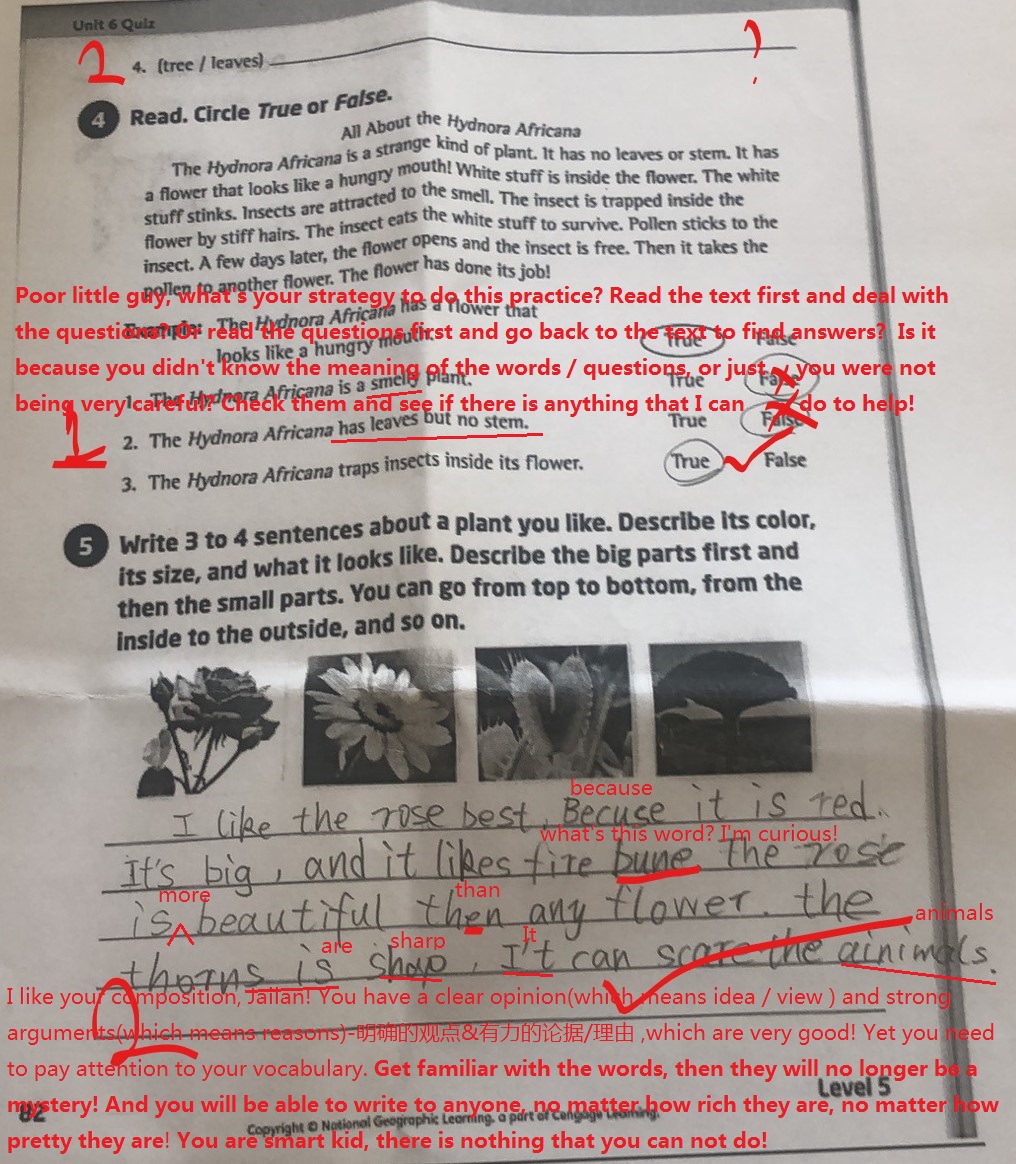 Unit 6 Quiz
2
4. (tree / leaves)
?
4 Read. Circle True or False.
All About the Hydnora Africana
The Hydnora Africana is a strange kind of plant. It has no leaves or stem. It has
a flower that looks like a hungry mouth! White stuff is inside the flower. The white
stuff stinks. Insects are attracted to the smell. The insect is trapped inside the
flower by stiff hairs. The insect eats the white stuff to survive. Pollen sticks to the
insect. A few days later, the flower opens and the insect is free. Then it takes the
pollen to another flower. The flower has done its job!
Poor little guy, what's your strategy to do this practice? Read the text first and deal with
the questions? or read the questions first and go back to the text to find answers? Is it
because you didn't know the meaning of the words / questions, or just you were not
being very careful? Check them and see if there is anything that I can do to help!
Example: The Hydnora Africana has a flower that
looks like a hungry mouth. True False
1. The Hydnora Africana is a smelly plant. True False
1
2. The Hydnora Africana has leaves but no stem. True False
3. The Hydnora Africana traps insects inside its flower. True False
5 Write 3 to 4 sentences about a plant you like. Describe its color,
its size, and what it looks like. Describe the big parts first and
then the small parts. You can go from top to bottom, from the
inside to the outside, and so on.
because
I like the rose best, Becuse it is red.
what's this word? I'm curious!
It's big, and it likes fire bune the rose
more than
is beautiful then any flower. the
animals
are sharp It
thorns is shap, I't can scare the ainimals.
I like your composition, Jailan! You have a clear opinion(which means idea / view ) and strong
arguments(which means reasons)-明确的观点&有力的论据/理由 ,which are very good! Yet you need
to pay attention to your vocabulary. Get familiar with the words, then they will no longer be a
mystery! And you will be able to write to anyone, no matter how rich they are, no matter how
pretty they are! You are smart kid, there is nothing that you can not do!
2
82
Level 5
Copyright © National Geographic Learning, a part of Cengage Learning.